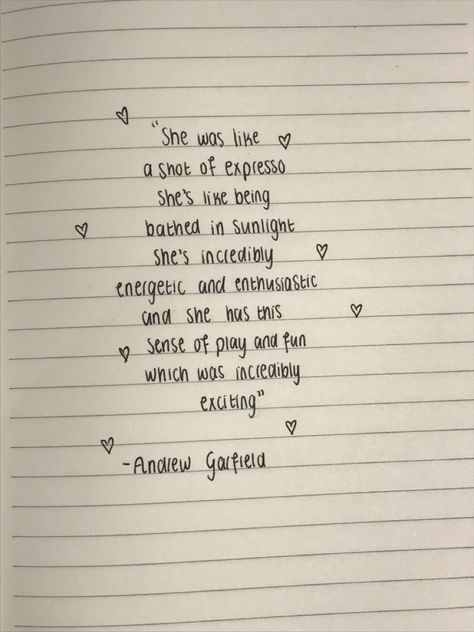 "She was like
a shot of expresso
She's like being
bathed in sunlight
She's incredibly
energetic and enthusiastic
and she has this
sense of play and fun
which was incredibly
exciting"
-Andrew Garfield